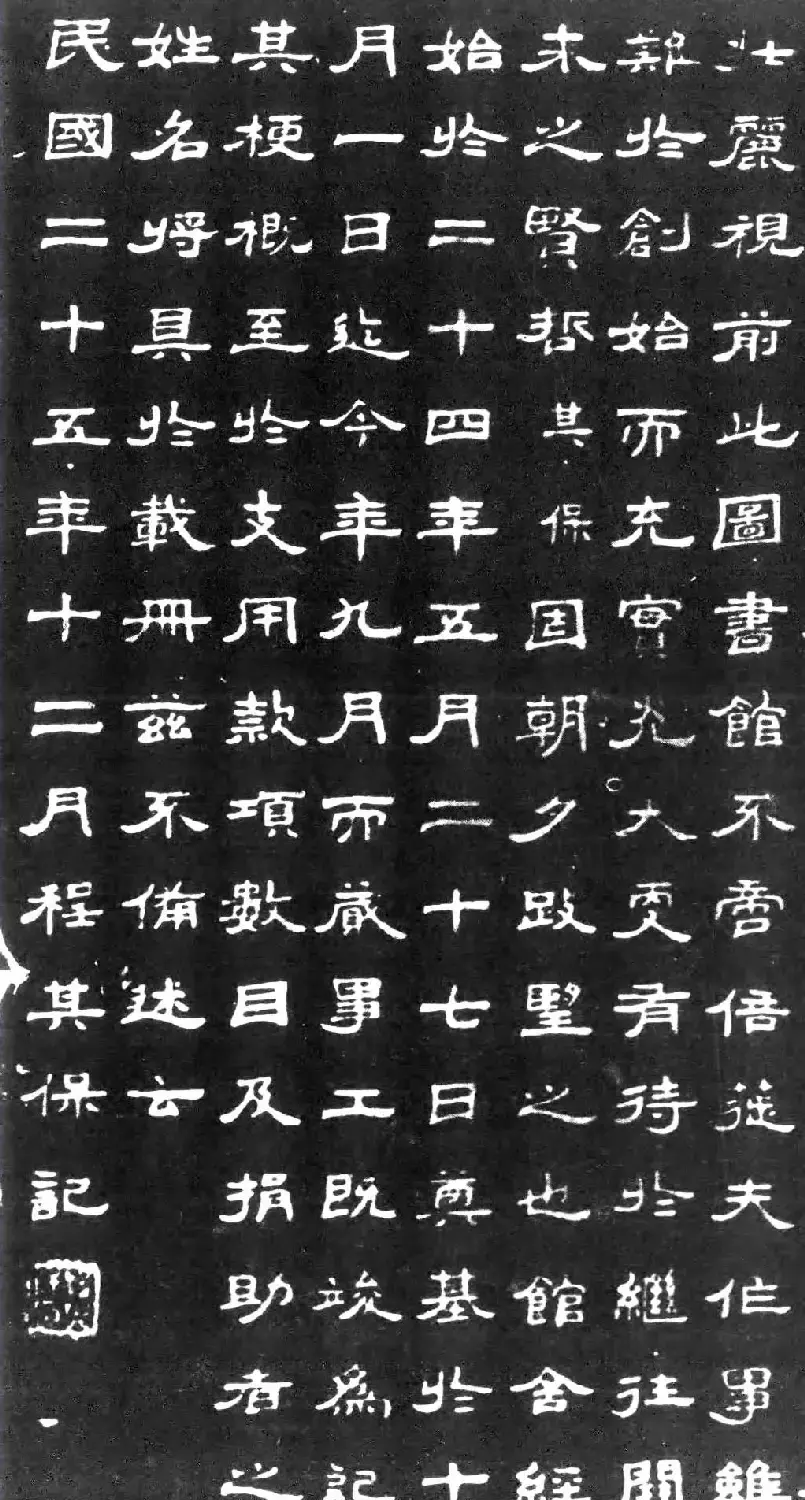 壯麗視前此圖書館不啻倍蓰夫作事雖
難於創始而充實光大更有待於繼往開
来之賢哲其保固朝夕跂望之也館舍經
始於二十四年五月二十七日奠基於十
月一日迄今年九月而蕆事工既竣爲記
其梗概至於支用款項數目及捐助者之
姓名將具於載冊兹不備述云
民國二十五年十二月程其保記